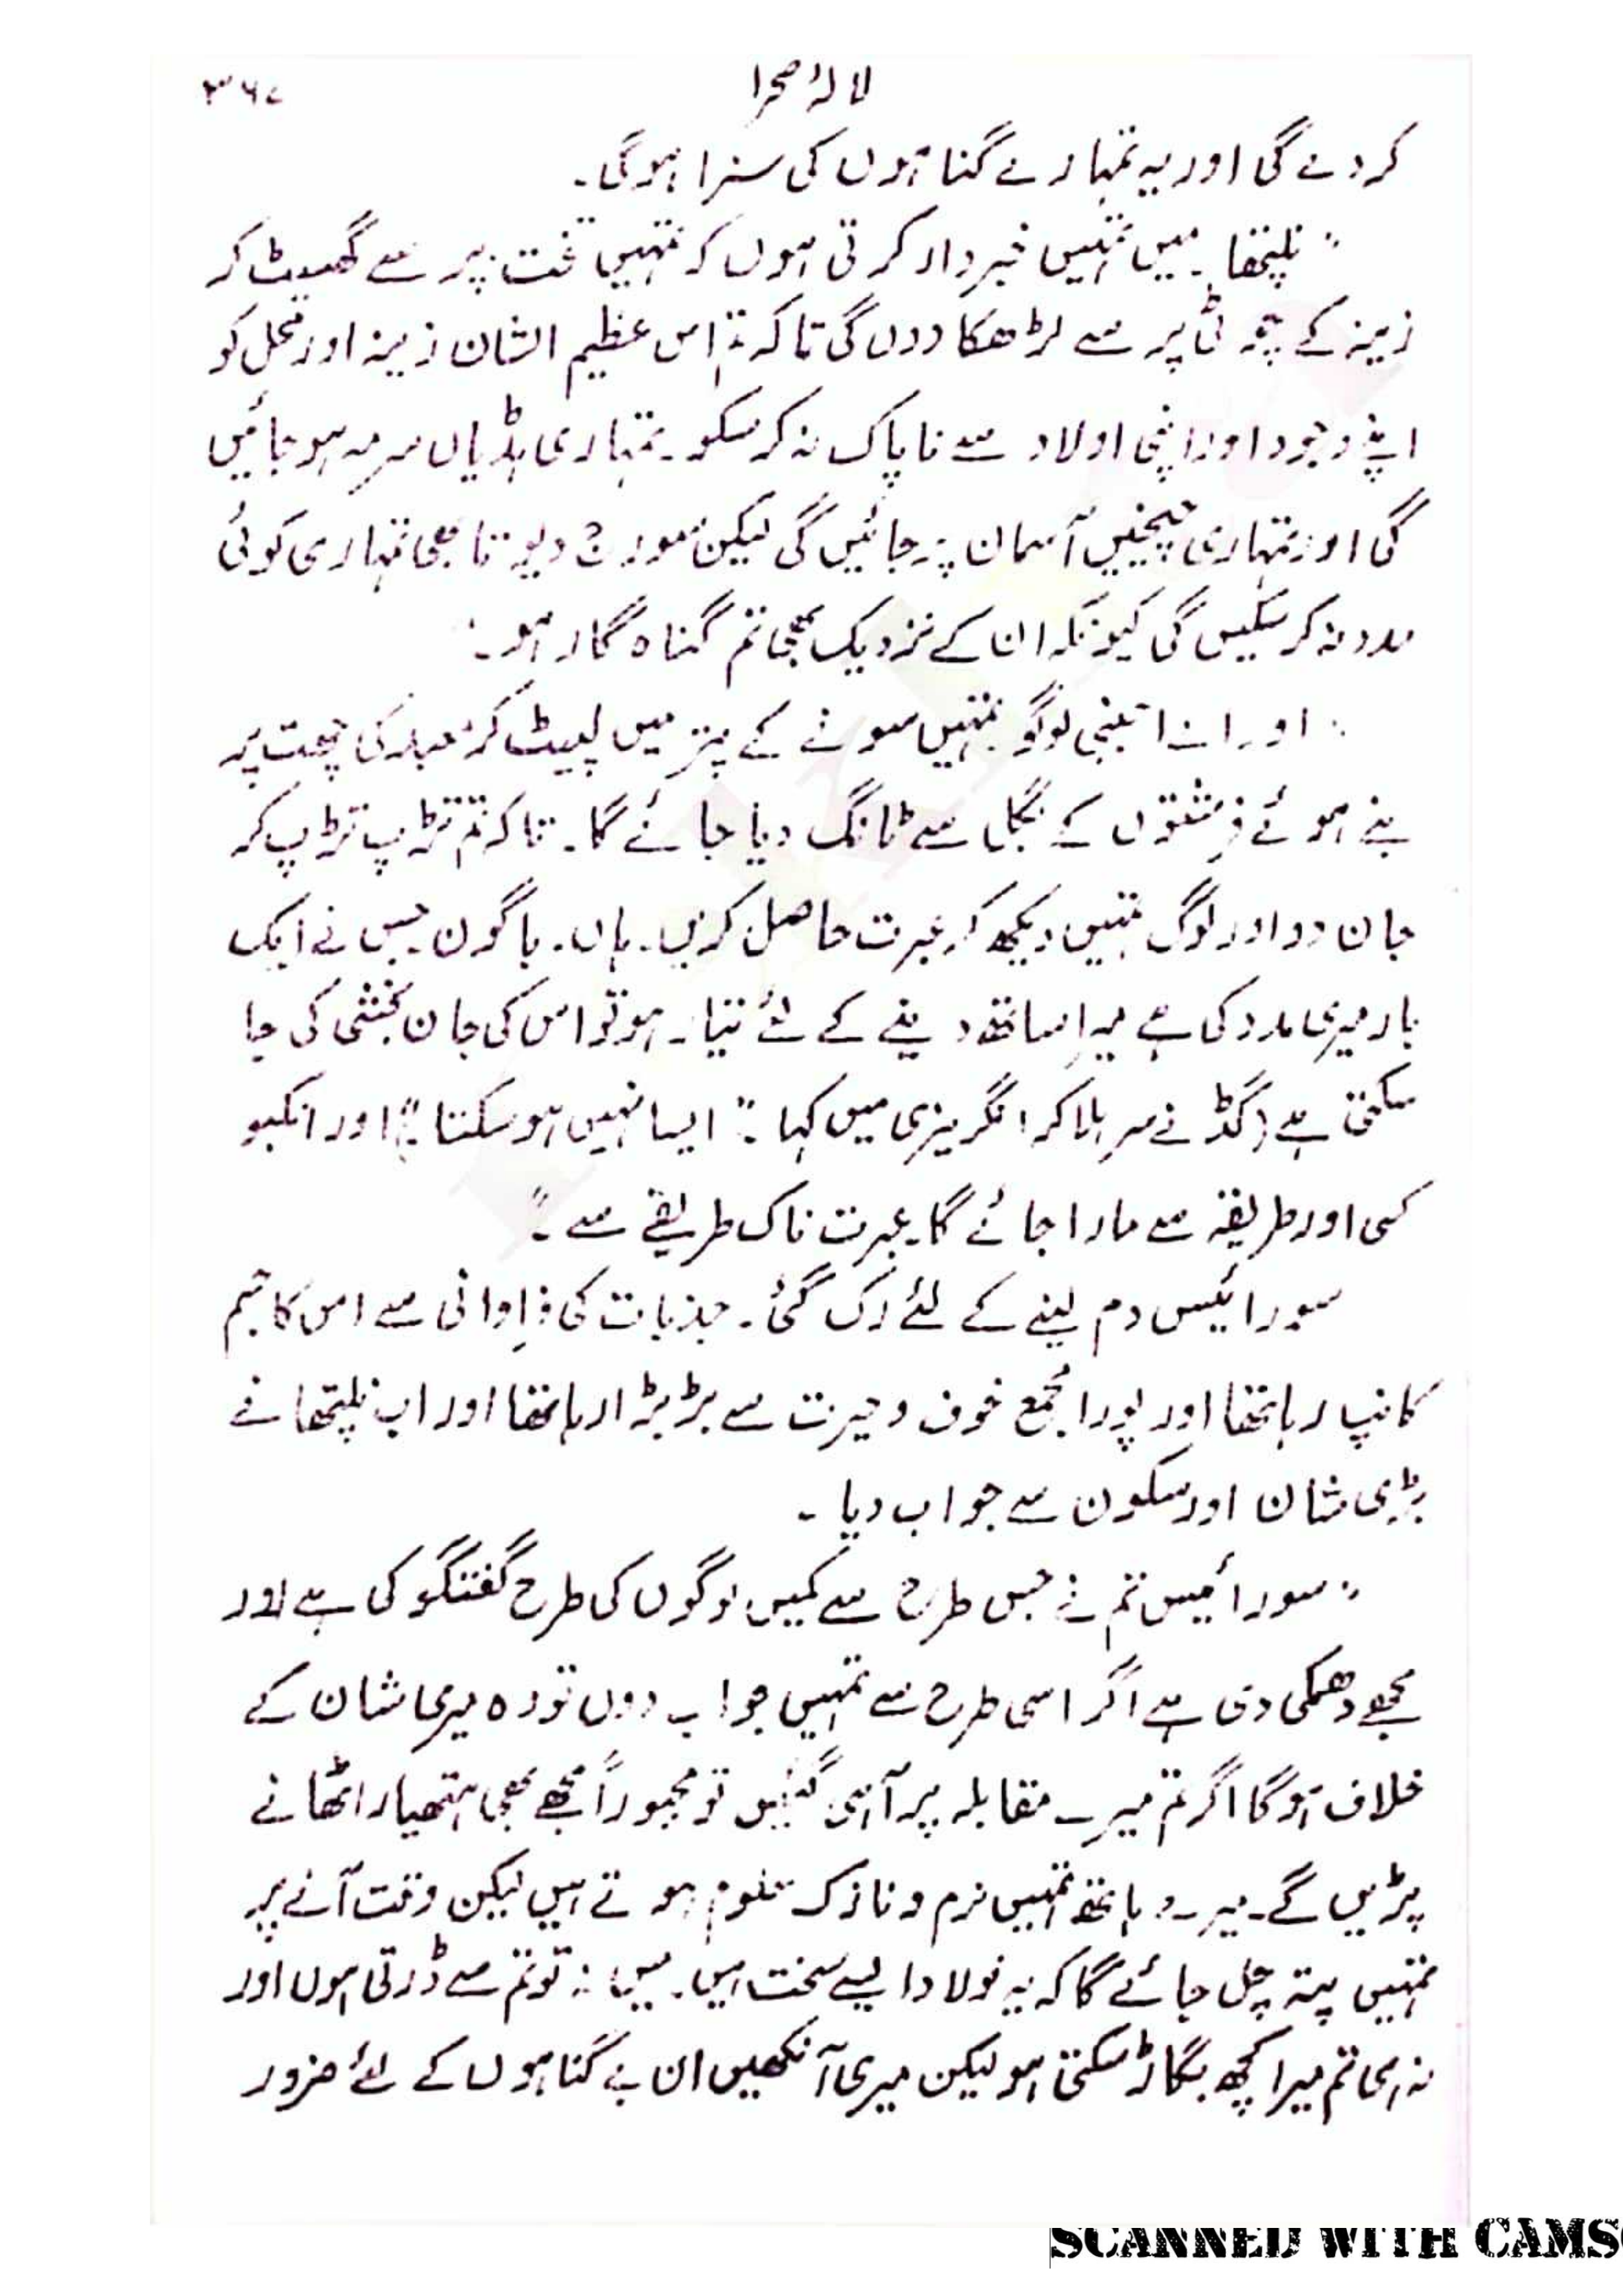 لالۂ صحرا ۳۶۷
کر دے گی اور یہ تمہارے گناہوں کی سزا ہوگی۔
"نلپتھا۔ میں تمہیں خبردار کرتی ہوں کہ تمہیں تخت پر سے گھسیٹ کر
زینہ کے چوٹی پر سے لڑھکا دوں گی تاکہ تم اس عظیم الشان زینہ اور محل کو
اپنے وجود اور اپنی اولاد سے ناپاک نہ کر سکو۔ تمہاری ہڈیاں سرمہ ہو جائیں
گی اور تمہاری چیخیں آسمان پر جائیں گی لیکن سورج دیوتا بھی تمہاری کوئی
مدد نہ کر سکیں گی کیونکہ ان کے نزدیک بھی تم گناہ گار ہو۔
اور اے اجنبی لوگو تمہیں سونے کے پتر میں لپیٹ کر معبد کی چھت پر
بنے ہوئے فرشتوں کے بگل سے ٹانگ دیا جائے گا۔ تاکہ تم تڑپ تڑپ کر
جان دو اور لوگ تمہیں دیکھ کر عبرت حاصل کریں۔ ہاں۔ باگون جس نے ایک
بار میری مدد کی ہے میرا ساتھ دینے کے لئے تیار ہو تو اس کی جان بخشی کی جا
سکتی ہے (گڈ نے سر ہلا کر انگریزی میں کہا۔" ایسا نہیں ہو سکتا") اور انکبو
کسی اور طریقہ سے مارا جائے گا۔ عبرت ناک طریقے سے۔"
سورائیس دم لینے کے لئے رک گئی۔ جذبات کی فراوانی سے اس کا جسم
کانپ رہا تھا اور پورا مجمع خوف و حیرت سے بڑبڑا رہا تھا اور اب نلپتھا نے
بڑی شان اور سکون سے جواب دیا۔
"سورائیس تم نے جس طرح سے کمیں لوگوں کی طرح گفتگو کی ہے اور
مجھے دھمکی دی ہے اگر اسی طرح سے تمہیں جواب دوں تو وہ میری شان کے
خلاف ہوگا اگر تم میرے مقابلہ پر آ ہی گئیں تو مجبوراً مجھے بھی ہتھیار اٹھانے
پڑیں گے۔ میرے ہاتھ تمہیں نرم و نازک معلوم ہوتے ہیں لیکن وقت آنے پر
تمہیں پتہ چل جائے گا کہ یہ فولاد ایسے سخت ہیں۔ میں نہ تو تم سے ڈرتی ہوں اور
نہ ہی تم میرا کچھ بگاڑ سکتی ہو لیکن میری آنکھیں ان بے گناہوں کے لئے ضرور
SCANNED WITH CAMS